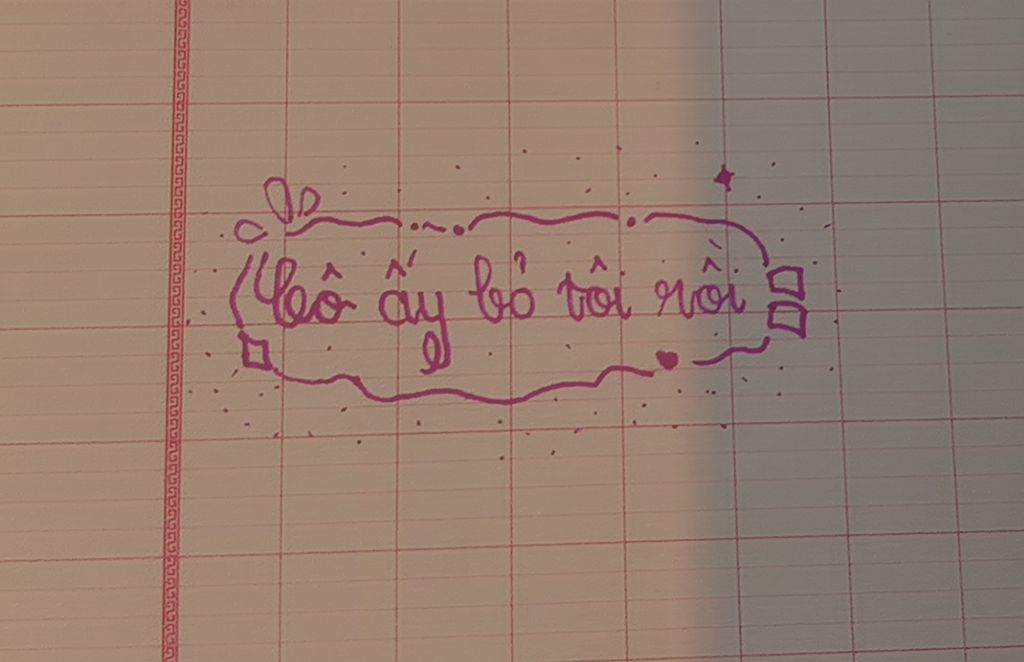 Cô ấy bỏ tôi rồi